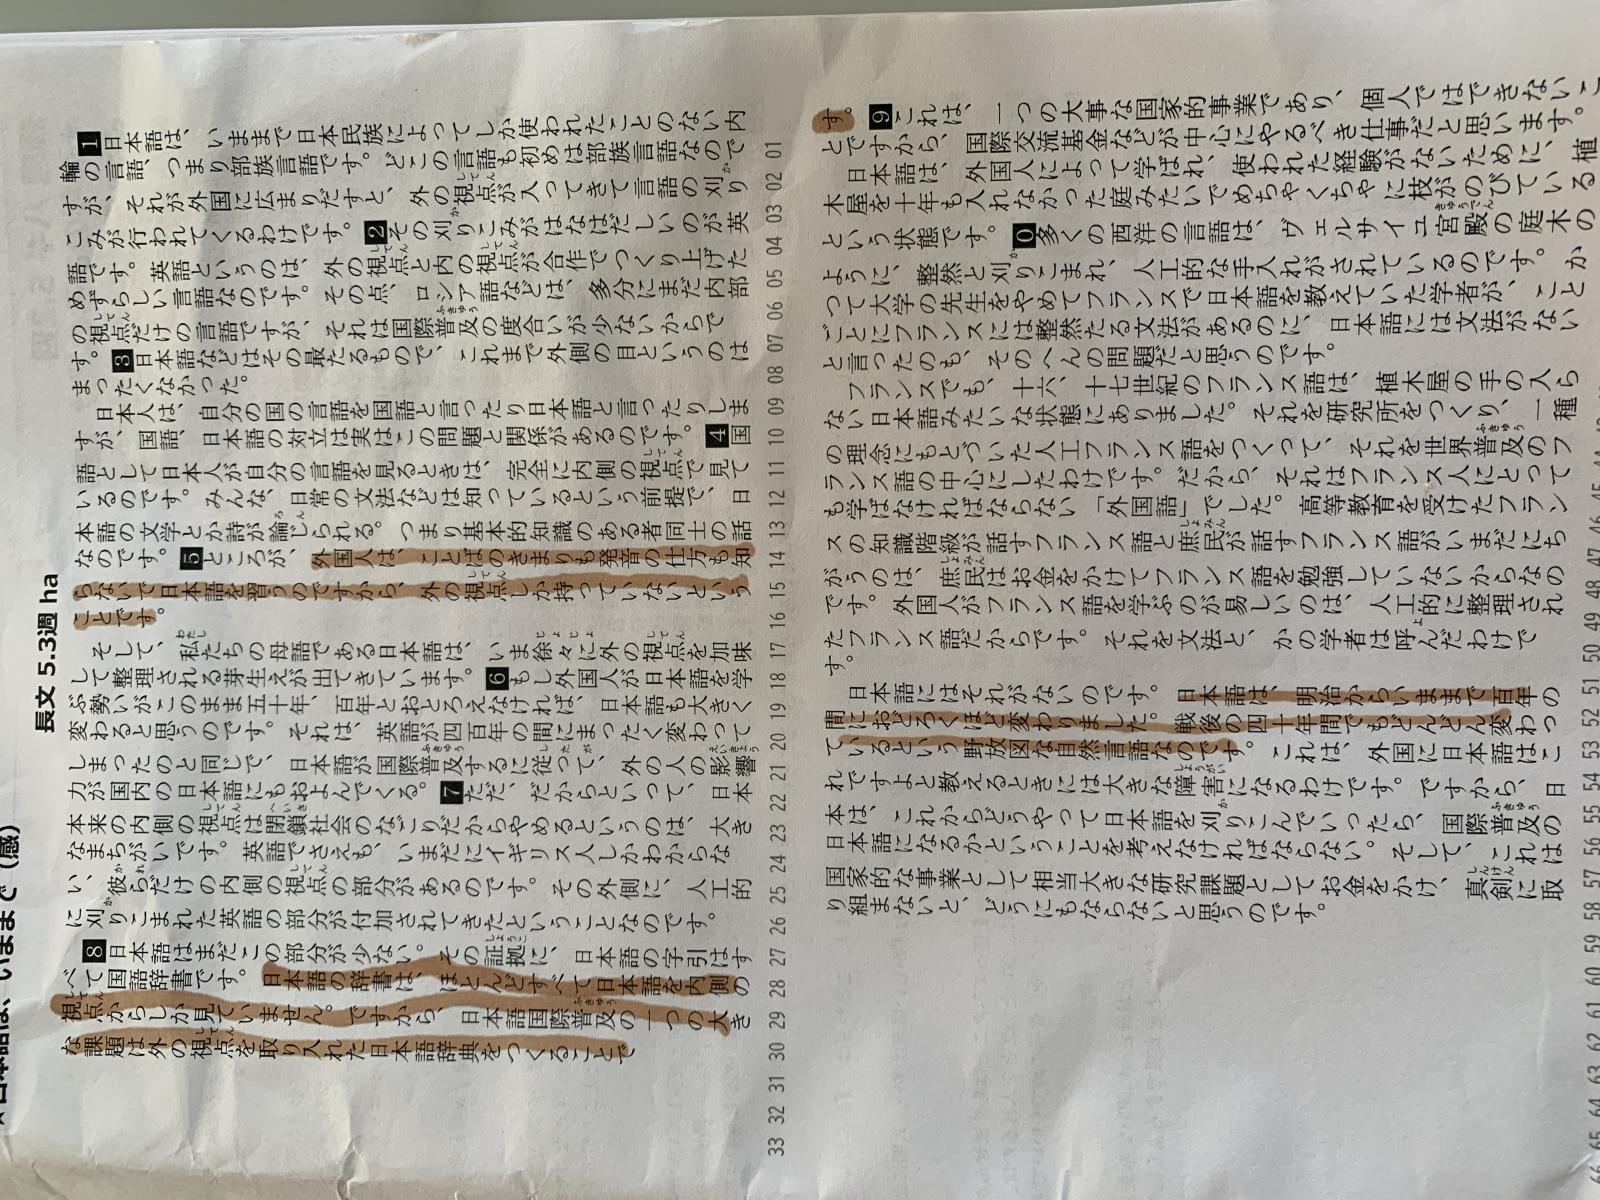 ★日本語は、いままで（感）
長文 5.3週 ha
1日本語は、いままで日本民族によってしか使われたことのない内
輪の言語、つまり部族言語です。どこの言語も初めは部族言語なので
すが、それが外国に広まりだすと、外の視点が入ってきて言語の刈り
こみが行われてくるわけです。2その刈りこみがはなはだしいのが英
語です。英語というのは、外の視点と内の視点が合作でつくり上げた
めずらしい言語なのです。その点、ロシア語などは、多分にまだ内部
の視点だけの言語ですが、それは国際普及の度合いが少ないからで
す。3日本語などはその最たるもので、これまで外側の目というのは
まったくなかった。
日本人は、自分の国の言語を国語と言ったり日本語と言ったりしま
すが、国語、日本語の対立は実はこの問題と関係があるのです。4国
語として日本人が自分の言語を見るときは、完全に内側の視点で見て
いるのです。みんな、日常の文法などは知っているという前提で、日
本語の文学とか詩が論じられる。つまり基本的知識のある者同士の話
なのです。5ところが、外国人は、ことばのきまりも発音の仕方も知
らないで日本語を習うのですから、外の視点しか持っていないという
ことです。
そして、私たちの母語である日本語は、いま徐々に外の視点を加味
して整理される芽生えが出てきています。6もし外国人が日本語を学
ぶ勢いがこのまま五十年、百年とおとろえなければ、日本語も大きく
変わると思うのです。それは、英語が四百年の間にまったく変わって
しまったのと同じで、日本語が国際普及するに従って、外の人の影響
力が国内の日本語にもおよんでくる。7ただ、だからといって、日本
本来の内側の視点は閉鎖社会のなごりだからやめるというのは、大き
なまちがいです。英語でさえも、いまだにイギリス人しかわからな
い、彼らだけの内側の視点の部分があるのです。その外側に、人工的
に刈りこまれた英語の部分が付加されてきたということなのです。
8日本語はまだこの部分が少ない。その証拠に、日本語の字引はす
べて国語辞書です。日本語の辞書は、ほとんどすべて日本語を内側の
視点からしか見ていません。ですから、日本語国際普及の一つの大き
な課題は外の視点を取り入れた日本語辞典をつくることで
01 02 03 04 05 06 07 08 09 10 11 12 13 14 15 16 17 18 19 20 21 22 23 24 25 26 27 28 29 30 31 32 33
す。9これは、一つの大事な国家的事業であり、個人ではできないこ
とですから、国際交流基金などが中心にやるべき仕事だと思います。
日本語は、外国人によって学ばれ、使われた経験がないために、植
木屋を十年も入れなかった庭みたいでめちゃくちゃに枝がのびている
という状態です。0多くの西洋の言語は、ヴェルサイユ宮殿の庭木の
ように、整然と刈りこまれ、人工的な手入れがされているのです。か
つて大学の先生をやめてフランスで日本語を教えていた学者が、こと
ごとにフランスには整然たる文法があるのに、日本語には文法がない
と言ったのも、そのへんの問題だと思うのです。
フランスでも、十六、十七世紀のフランス語は、植木屋の手の入ら
ない日本語みたいな状態にありました。それを研究所をつくり、一種
の理念にもとづいた人工フランス語をつくって、それを世界普及のフ
ランス語の中心にしたわけです。だから、それはフランス人にとって
も学ばなければならない「外国語」でした。高等教育を受けたフラン
スの知識階級が話すフランス語と庶民が話すフランス語がいまだにち
がうのは、庶民はお金をかけてフランス語を勉強していないからなの
です。外国人がフランス語を学ぶのが易しいのは、人工的に整理され
たフランス語だからです。それを文法と、かの学者は呼んだわけで
す。
日本語にはそれがないのです。日本語は、明治からいままで百年の
間におどろくほど変わりました。戦後の四十年間でもどんどん変わっ
ているという野放図な自然言語なのです。これは、外国に日本語はこ
れですよと教えるときには大きな障害になるわけです。ですから、日
本は、これからどうやって日本語を刈りこんでいったら、国際普及の
日本語になるかということを考えなければならない。そして、これは
国家的な事業として相当大きな研究課題としてお金をかけ、真剣に取
り組まないと、どうにもならないと思うのです。
44 45 46 47 48 49 50 51 52 53 54 55 56 57 58 59 60 61 62 63 64 65 66